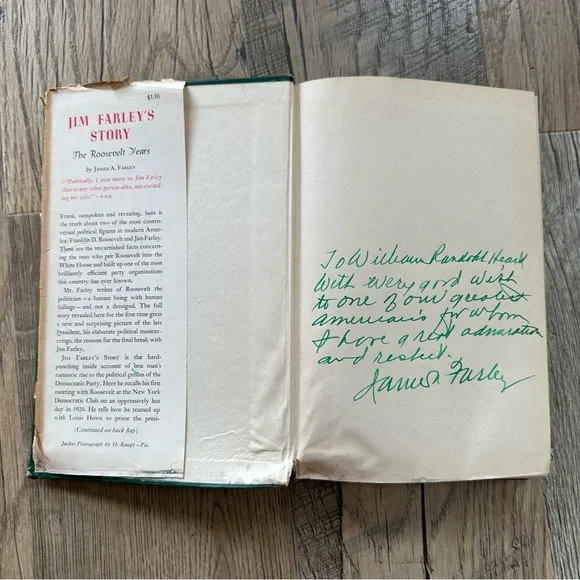 $3.50
JIM FARLEY'S
STORY
The Roosevelt Years
by JAMES A. FARLEY
—"Politically, I owe more to Jim Farley
than to any other person alive, not exclud-
ing my wife!"—F.D.R.
Frank, outspoken and revealing, here is
the truth about two of the most contro-
versial political figures in modern Amer-
ica: Franklin D. Roosevelt and Jim Farley.
These are the unvarnished facts concern-
ing the man who put Roosevelt into the
White House and built up one of the most
brilliantly efficient party organizations
this country has ever known.
Mr. Farley writes of Roosevelt the
politician—a human being with human
failings—and not a demigod. The full
story revealed here for the first time gives
a new and surprising picture of the late
president, his elaborate political maneuv-
erings, the reasons for the final break with
Jim Farley.
JIM FARLEY'S STORY is the hard-
punching inside account of one man's
meteoric rise to the political genius of the
Democratic Party. Here he recalls his first
meeting with Roosevelt at the New York
Democratic Club on an oppressively hot
day in 1920. He tells how he teamed up
with Louis Howe to prime the presi-
[Continued on back flap]
Jacket Photograph by H. Knopf—Pix.
To William Randolph Hearst
With every good wish
to one of our greatest
Americans for whom
I have a great admiration
and respect.
James A Farley